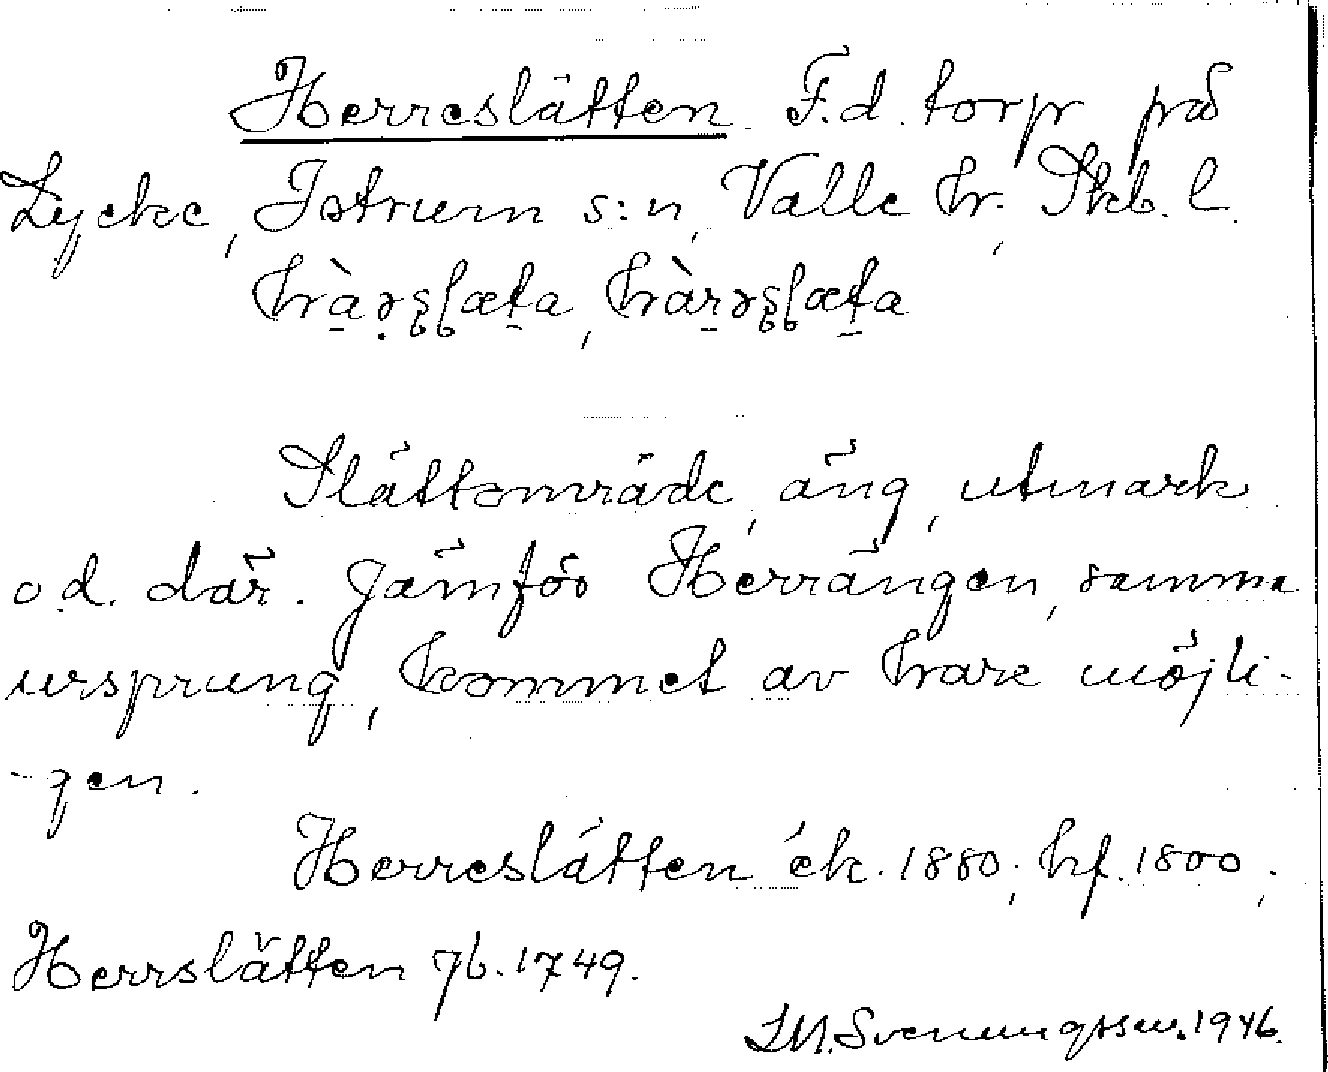 Herreslätten. F.d. torp på
Lycke, Istrum s:n, Valle hr., Skb. l.
Slättområde, äng, utmark
o.d. där. Jämför Herrängen, samma
ursprung, kommet av hare möjli-
-gen.
Herreslätten ek. 1880; hf. 1800;
Herrslätten jb. 1749.
S.M. Svenungsson. 1946.